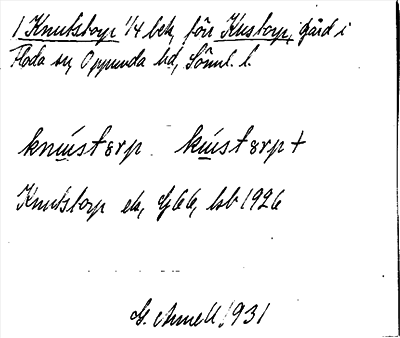 1 Knutstorp 1/4 bek, förr Knstorp, gård i
Floda sn, Oppunda hd, Söml. l.
knústørp kústørp +
Knutstorp ek, G66, hsb 1926
G. Amell 1931